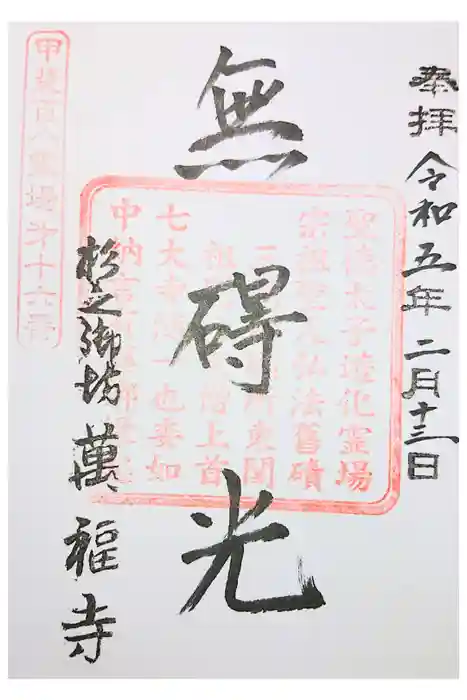 奉拝 令和五年 二月十三日
無碍光
聖徳太子遺化霊場
宗祖聖人弘法舊磧
七大寺
中納言
杉之御坊 萬福寺
甲斐百八霊場第十六番